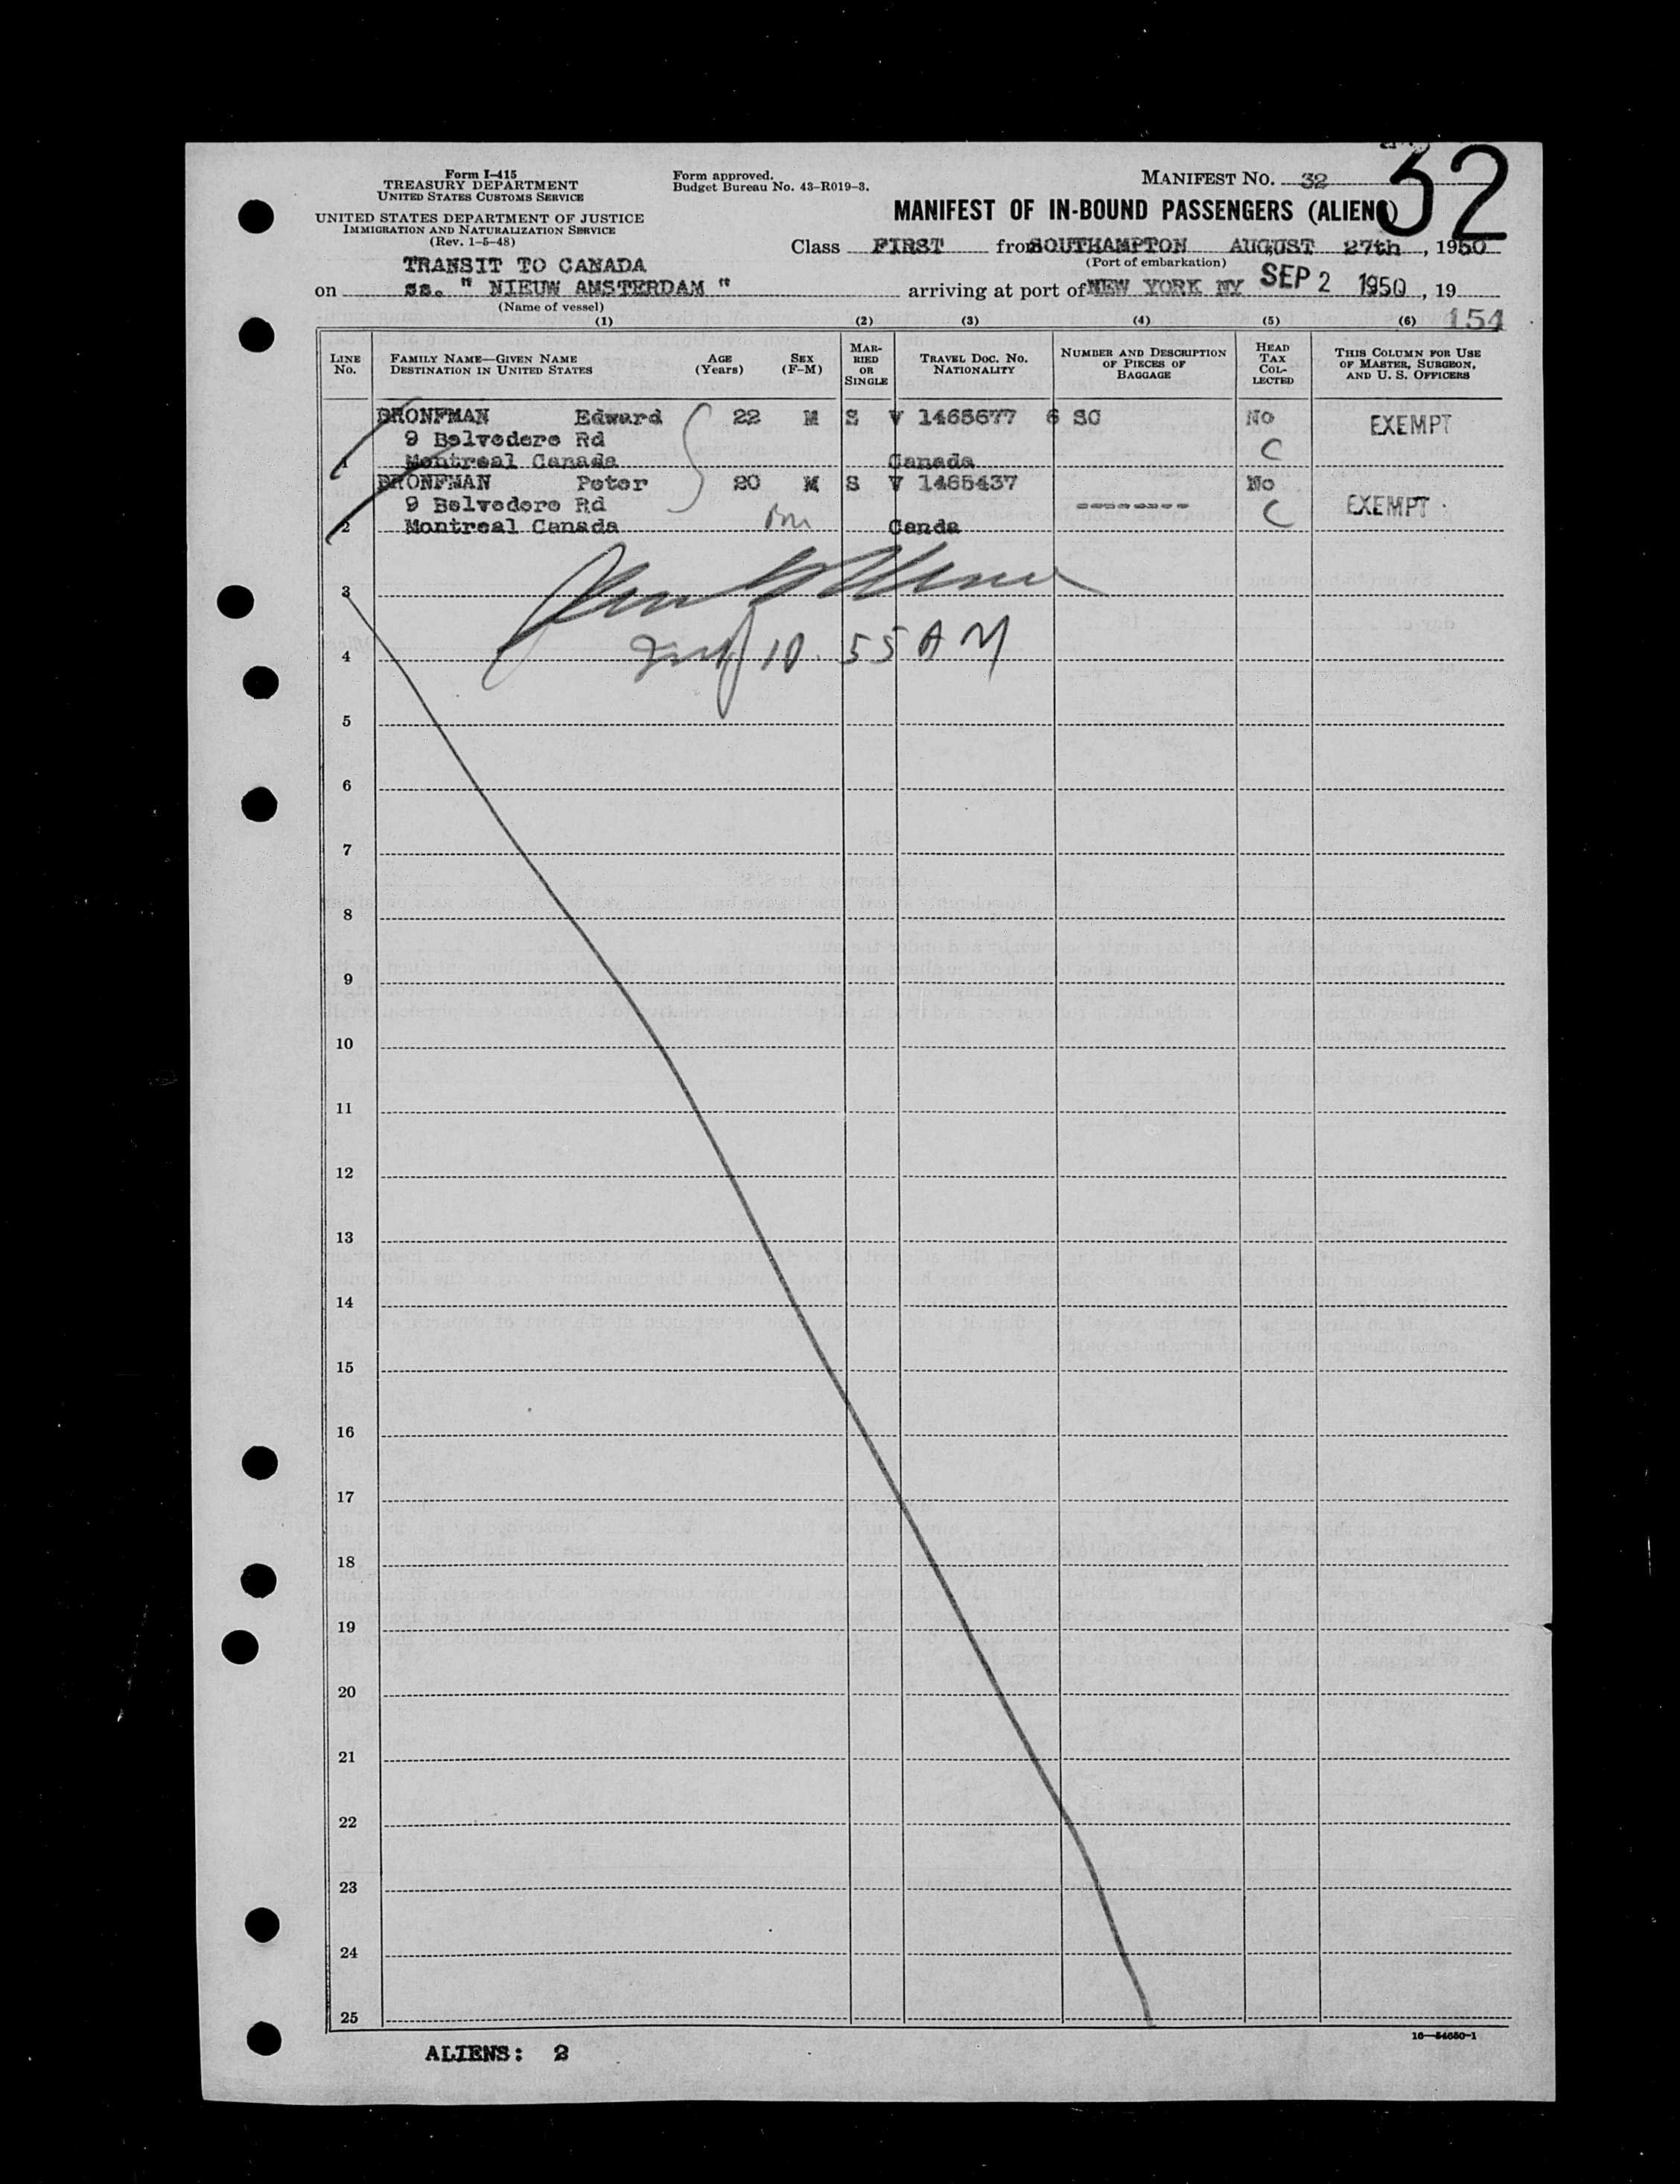 Form I-415
TREASURY DEPARTMENT
UNITED STATES CUSTOMS SERVICE
UNITED STATES DEPARTMENT OF JUSTICE
IMMIGRATION AND NATURALIZATION SERVICE
(Rev. 1-5-48)
Form approved.
Budget Bureau No. 43-R019-3.
MANIFEST NO. 32
32
MANIFEST OF IN-BOUND PASSENGERS (ALIENS)
Class FIRST from SOUTHAMPTON AUGUST 27th, 1950
(Port of embarkation)
TRANSIT TO CANADA
on ss. " NIEUW AMSTERDAM " arriving at port of NEW YORK NY SEP 2 1950, 19
(Name of vessel)
154
(1) (2) (3) (4) (5) (6)
LINE No. FAMILY NAME—GIVEN NAME DESTINATION IN UNITED STATES AGE (Years) SEX (F-M) MARRIED OR SINGLE TRAVEL DOC. NO. NATIONALITY NUMBER AND DESCRIPTION OF PIECES OF BAGGAGE HEAD TAX COLLECTED THIS COLUMN FOR USE OF MASTER, SURGEON, AND U. S. OFFICERS
BRONFMAN Edward 22 M S V 1465677 6 SC No EXEMPT
9 Belvedere Rd
1 Montreal Canada Canada C
BRONFMAN Peter 20 M S V 1465437 No
9 Belvedere Rd -------- C EXEMPT
2 Montreal Canada Canda
3
4 10.55 AM
5
6
7
8
9
10
11
12
13
14
15
16
17
18
19
20
21
22
23
24
25
16—54650-1
ALIENS: 2